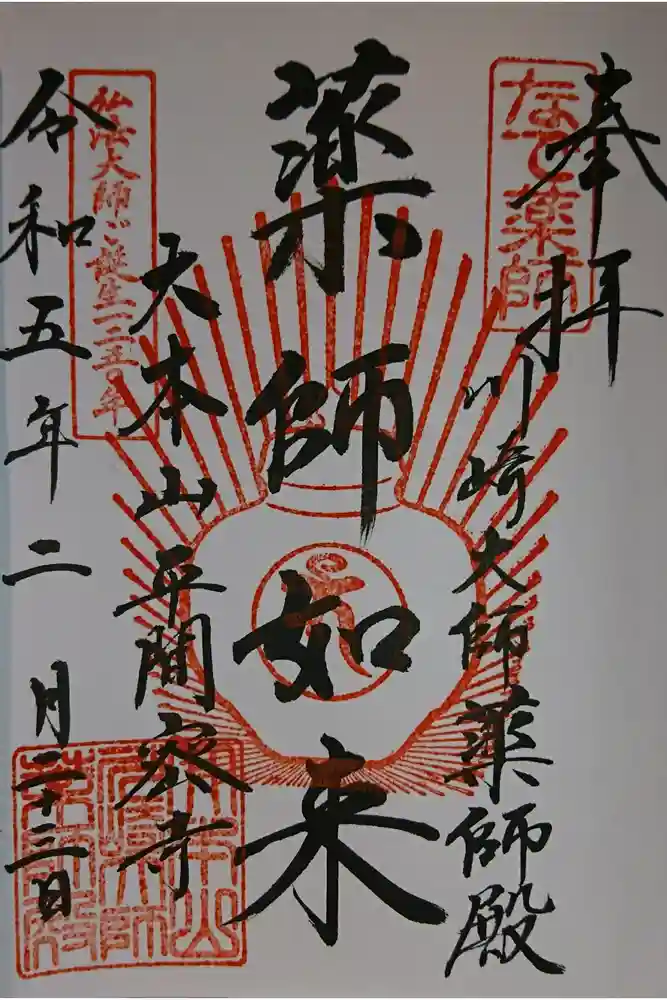 奉拝
なで薬師
川崎大師薬師殿
薬師如来
大本山平間密寺
弘法大師ご誕生一二五〇年
令和五年二月二十三日